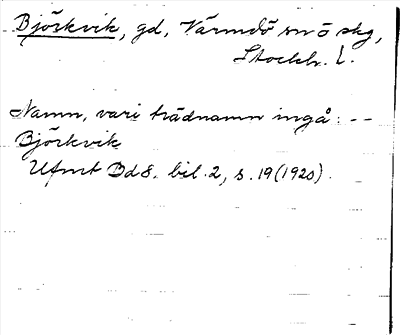 Björkvik, gd, Värmdö sn o skg,
Stockh. l.
Namn, vari trädnamn ingå: --
Björkvik
Ufmt Bd 8. bil. 2, s. 19 (1920).